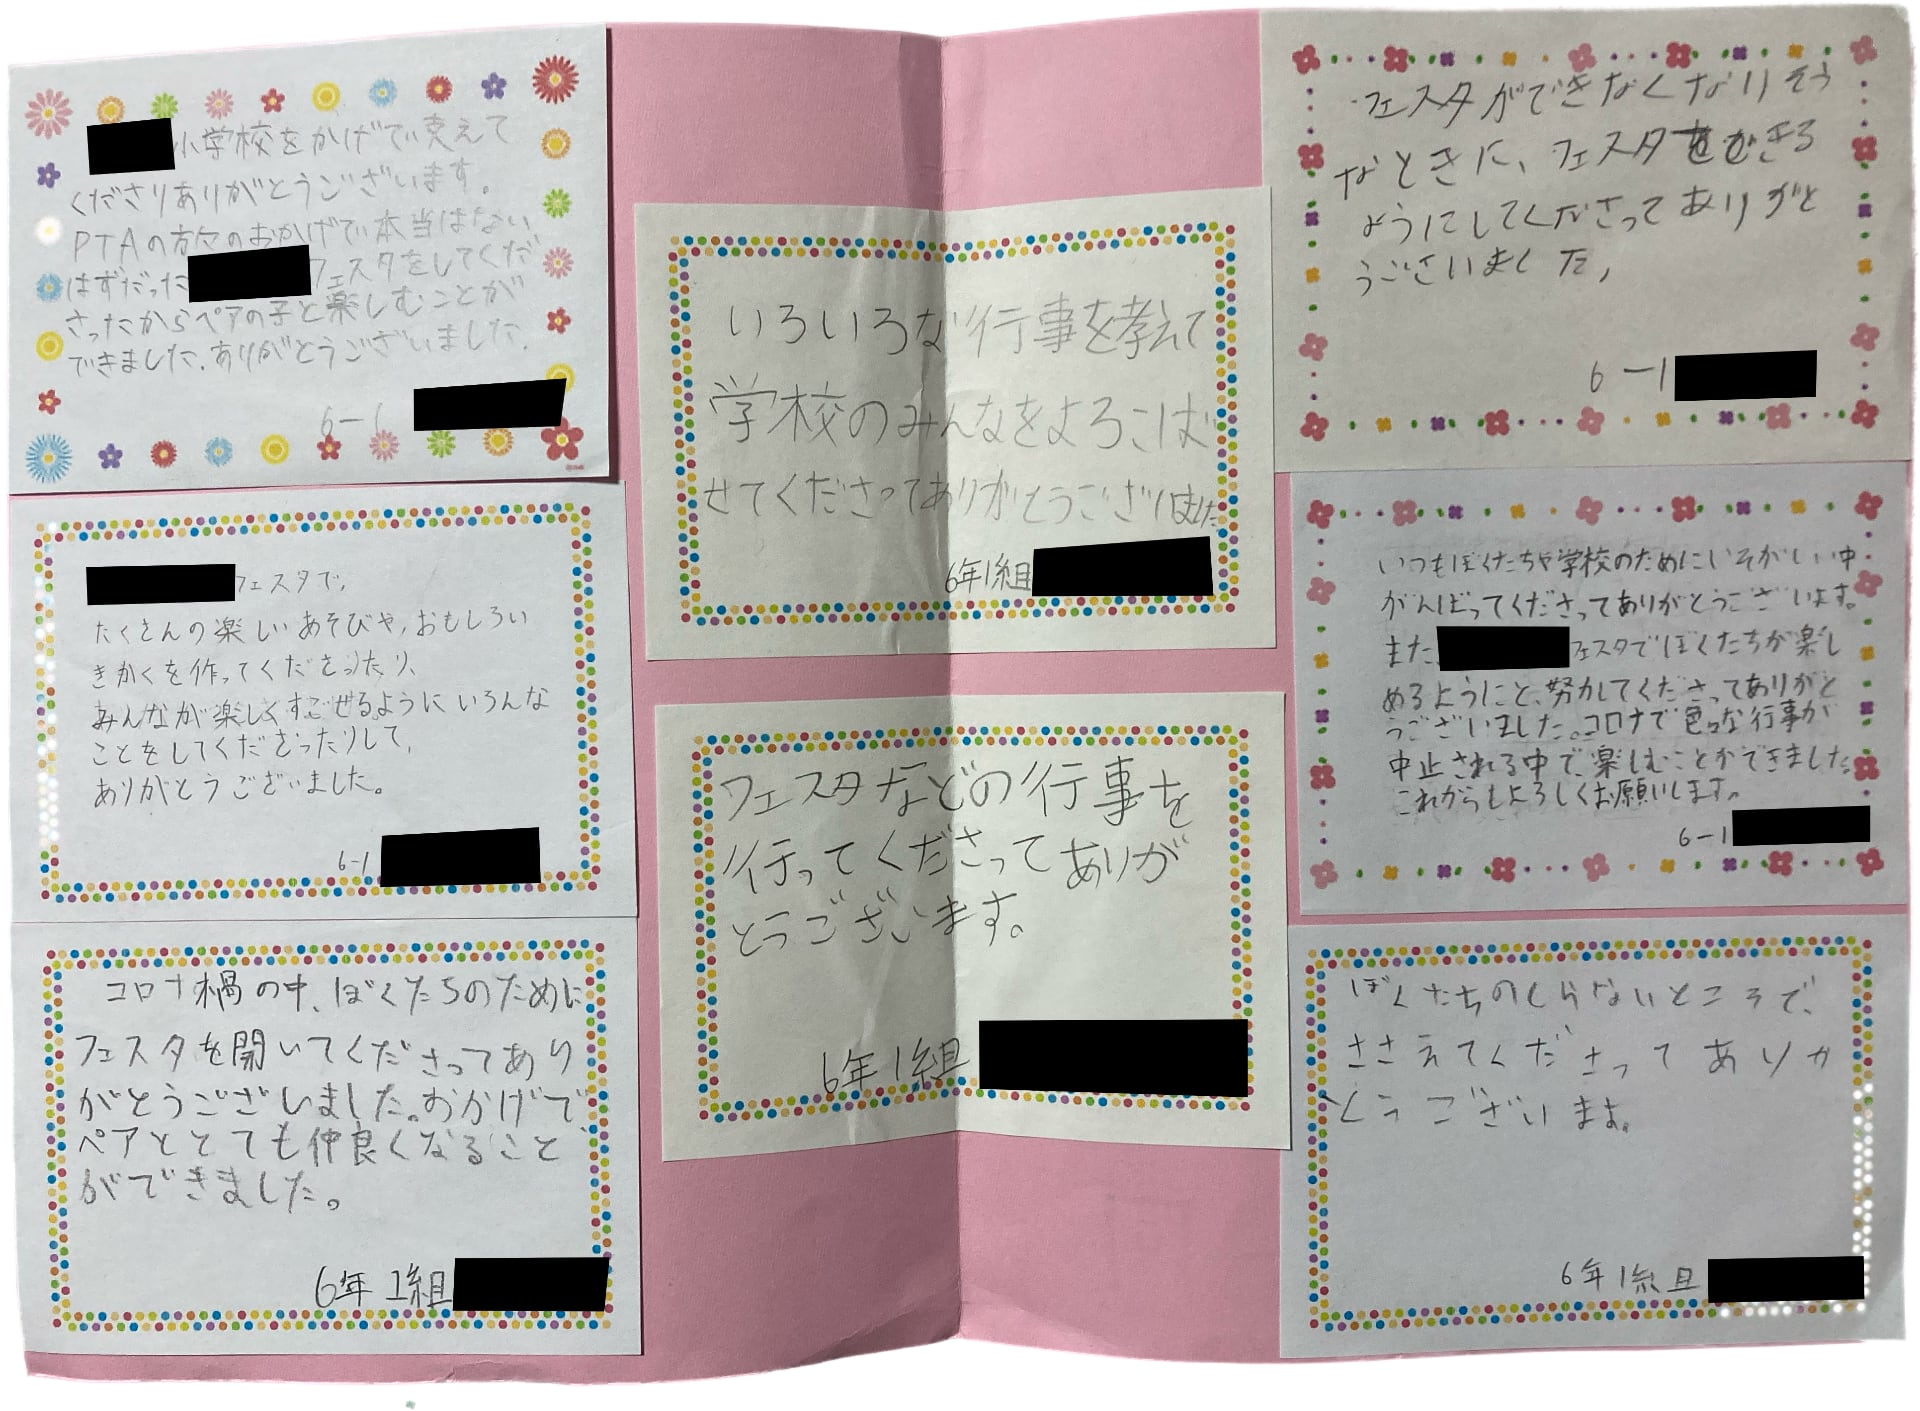 小学校をかげで支えて
くださりありがとうございます。
PTAの方々のおかげで本当はない
はずだった フェスタをしてくだ
さったからペアの子と楽しむことが
できました.ありがとうございました.
6-1
フェスタで,
たくさんの楽しいあそびや,おもしろい
きかくを作ってくださったり、
みんなが楽しくすごせるようにいろんな
ことをしてくださったりして,
ありがとうございました。
6-1
コロナ禍の中、ぼくたちのために
フェスタを開いてくださってあり
がとうございました。おかげで、
ペアととても仲良くなること
ができました。
6年1組
いろいろな行事を考えて
学校のみんなをよろこば
せてくださってありがとうございました
6年1組
フェスタなどの行事を
行ってくださってありが
とうございます。
6年1組
フェスタができなくなりそう
なときに、フェスタをできる
ようにしてくださってありがと
うございました,
6-1
いつもぼくたちや学校のためにいそがしい中
がんばってくださってありがとうございます。
また フェスタでぼくたちが楽し
めるようにと、努力してくださってありがと
うございました。コロナで色々な行事が
中止される中で、楽しむことができました。
これからもよろしくお願いします。
6-1
ぼくたちのしらないところで、
ささえてくださってありが
とうございます。
6年1組